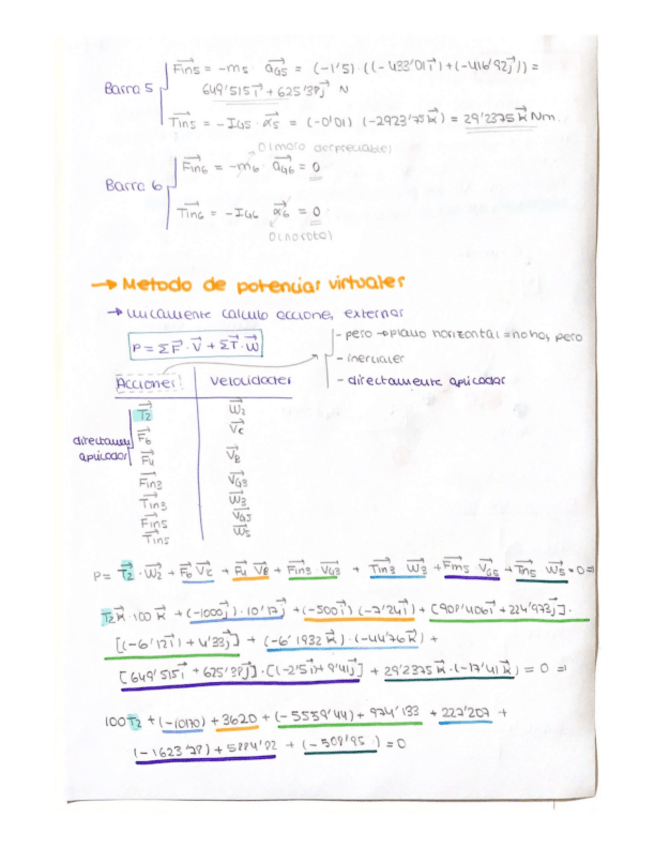 Barra 5
Fin5 = -m5 · aG5 = (-1'5) · ((-433'01 i) + (-416'92 j)) =
649'515 i + 625'38 j N
Tin5 = -IG5 · α5 = (-0'01) (-2923'75 k) = 29'2375 k Nm.
Barra 6
Fin6 = -m6 · aG6 = 0
Tin6 = -IG6 α6 = 0
→ Metodo de potencias virtuales
→ unicamente calculo acciones externas
P = ΣF · V + ΣT · W
- peso → plano horizontal = no hay peso
- inerciales
- directamente aplicadas
Acciones Velocidades
directam aplicadas
T2 W2
F6 Vc
F4 VB
Fin3 VG3
Tin3 W3
Fin5 VG5
Tin5 W5
P = T2 · W2 + F6 Vc + F4 VB + Fin3 · VG3 + Tin3 W3 + Fin5 VG5 + Tin5 W5 = 0 ⇒
T2 k · 100 k + (-1000 j) · 10'17 j + (-500 i) (-7'24 i) + [908'406 i + 224'973 j] ·
[(-6'12 i) + 4'33 j] + (-6'1932 k) · (-44'76 k) +
[649'515 i + 625'38 j] · [(-2'5 i + 9'41 j] + 29'2375 k · (-17'41 k) = 0 ⇒
100 T2 + (-10170) + 3620 + (-5559'44) + 974'133 + 227'207 +
(-1623'78) + 5884'82 + (-508'95) = 0